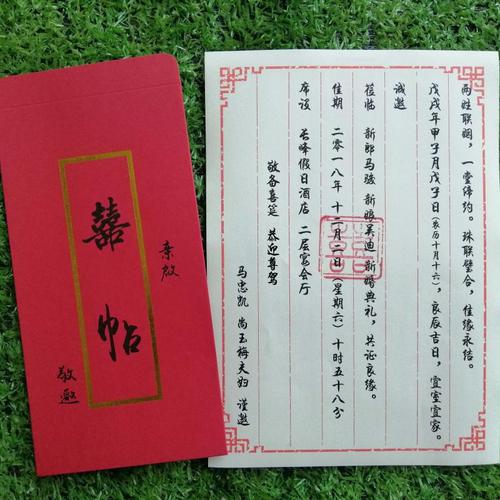 囍帖
亲启
敬邀
两姓联姻，一堂缔约。珠联璧合，佳缘永结。
戊戌年甲子月戊子日（农历十月十六），良辰吉日，宜室宜家。
诚邀
莅临 新郎马骏 新娘吴迪 新婚典礼，共证良缘。
佳期 二〇一八年 十二月二日（星期六）十时五十八分
席设 名峰假日酒店 二层宴会厅
敬备喜筵 恭迎尊驾
马忠凯 尚玉梅夫妇 谨邀
囍